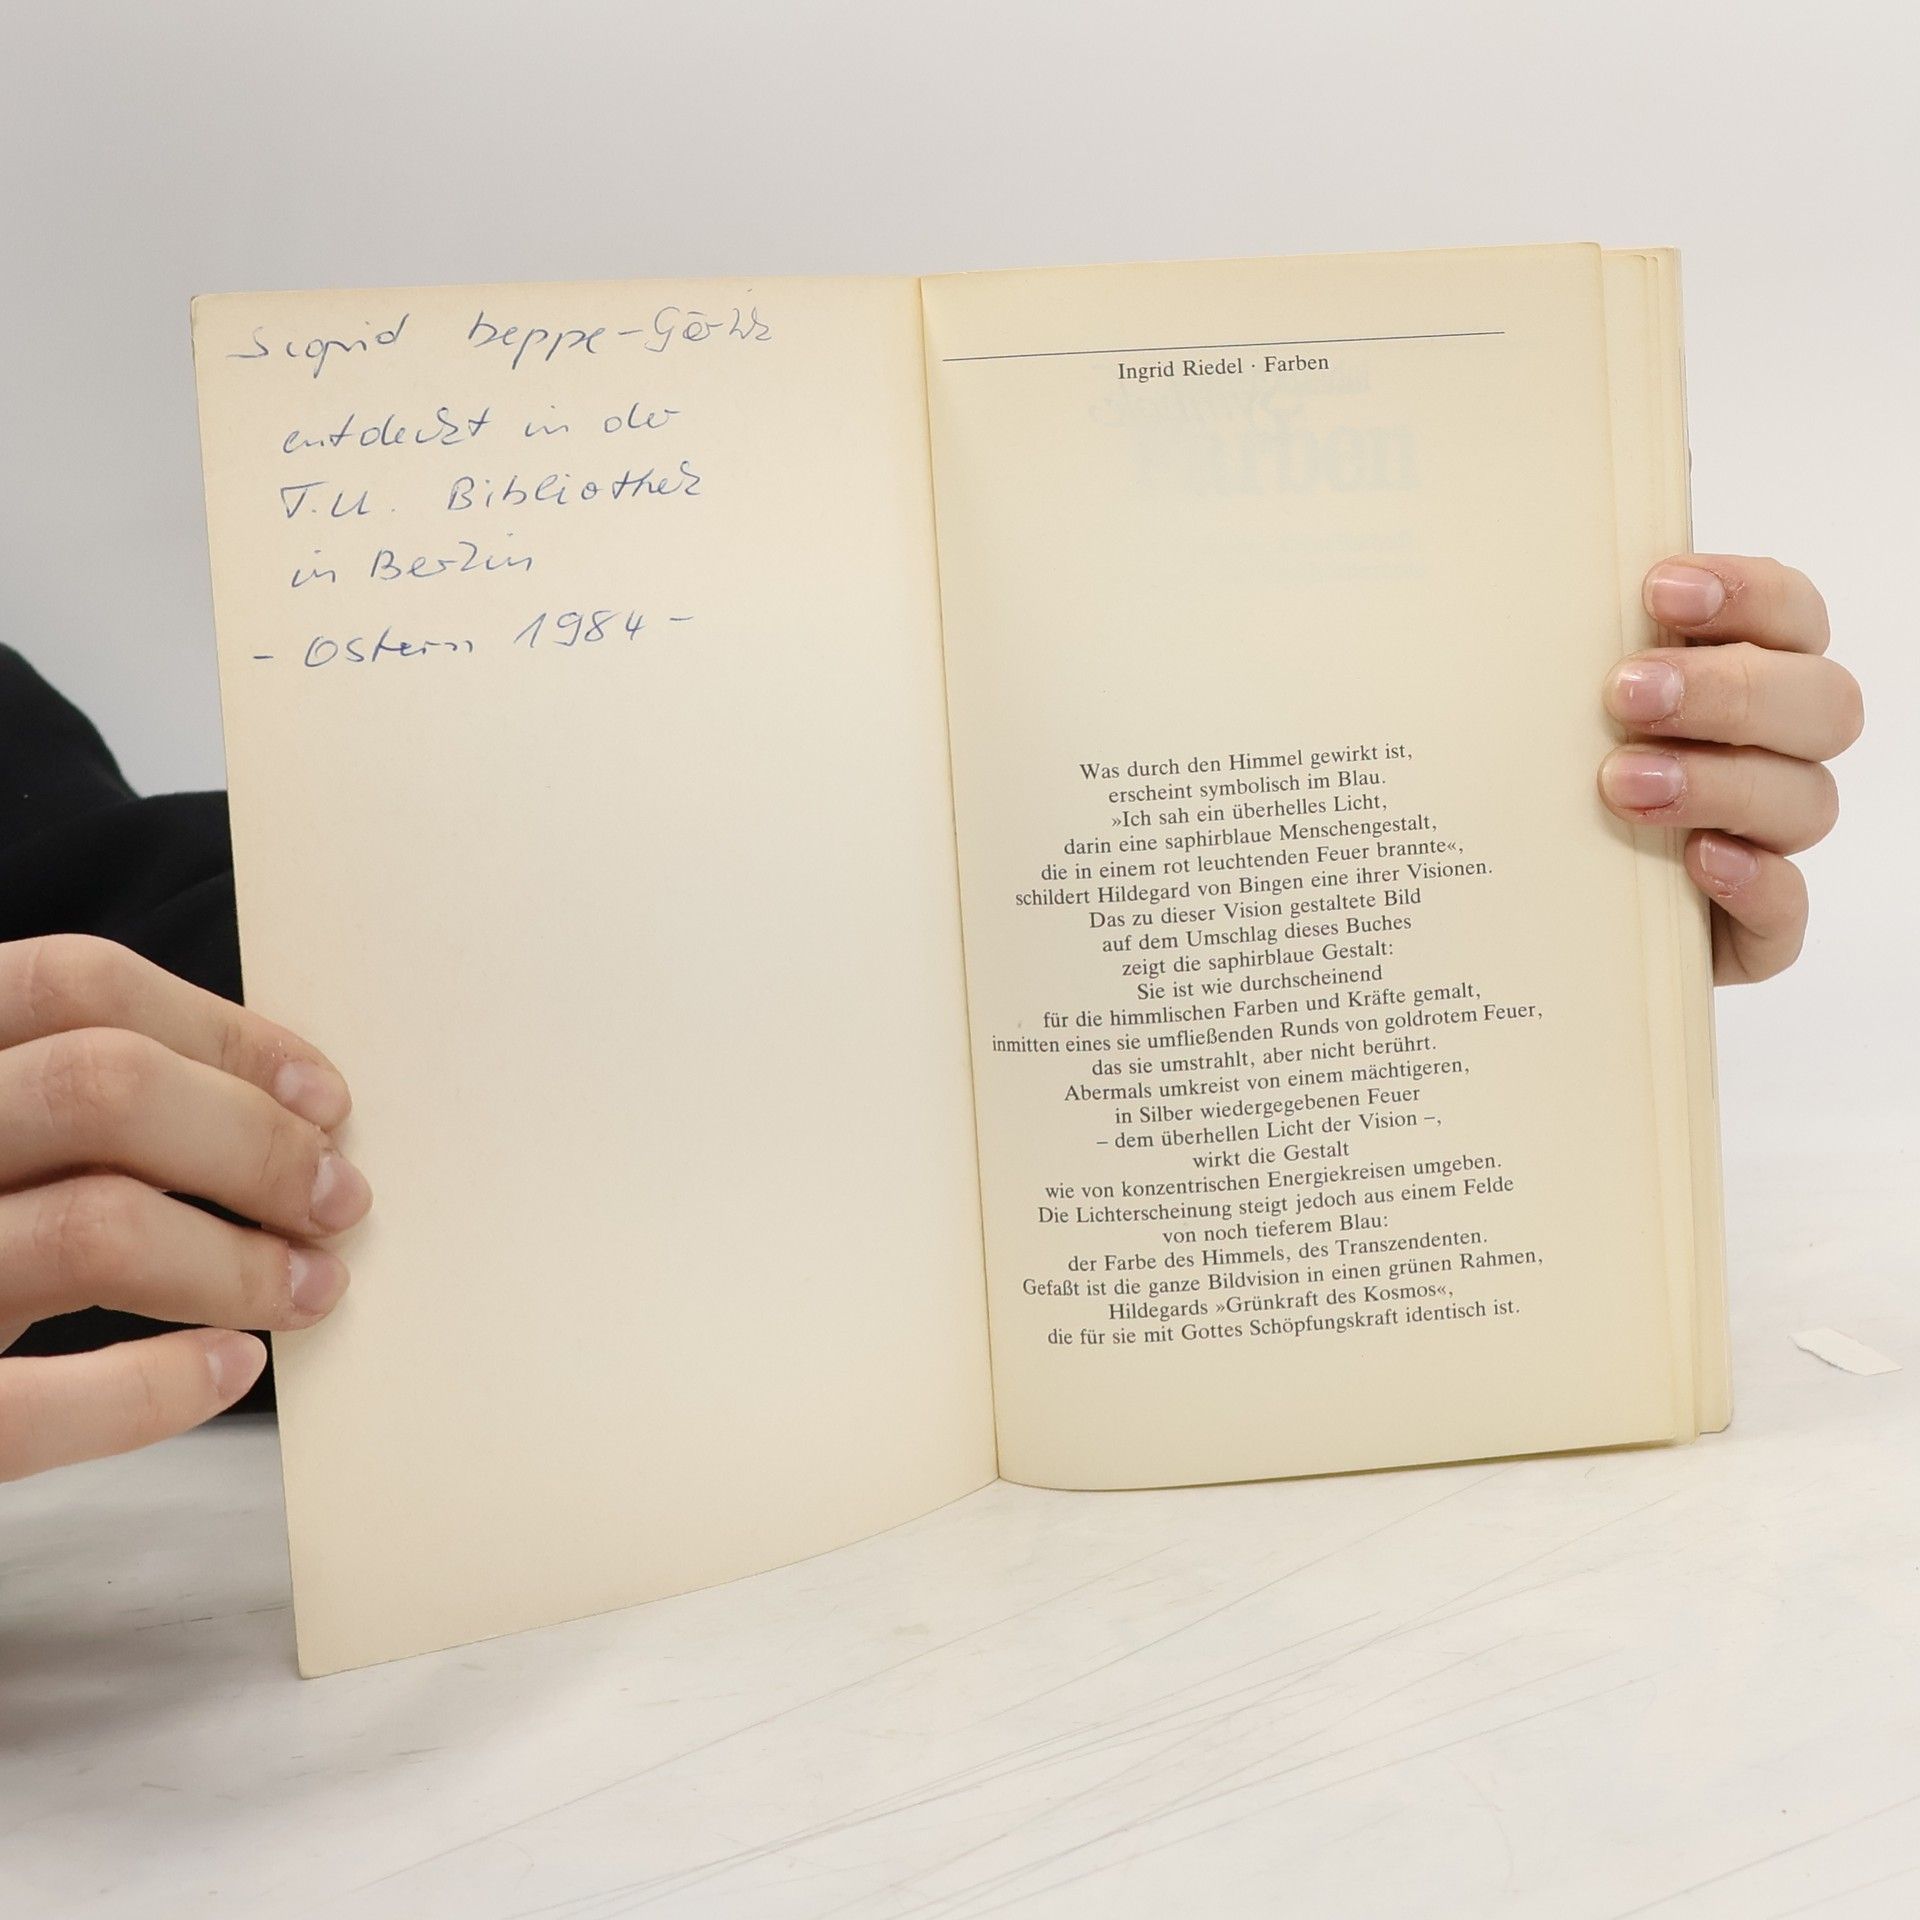 Sigrid
entdeckt in der
T.U. Bibliothek
in Berlin
- Ostern 1984 -
Ingrid Riedel · Farben
Was durch den Himmel gewirkt ist,
erscheint symbolisch im Blau.
»Ich sah ein überhelles Licht,
darin eine saphirblaue Menschengestalt,
die in einem rot leuchtenden Feuer brannte«,
schildert Hildegard von Bingen eine ihrer Visionen.
Das zu dieser Vision gestaltete Bild
auf dem Umschlag dieses Buches
zeigt die saphirblaue Gestalt:
Sie ist wie durchscheinend
für die himmlischen Farben und Kräfte gemalt,
inmitten eines sie umfließenden Runds von goldrotem Feuer,
das sie umstrahlt, aber nicht berührt.
Abermals umkreist von einem mächtigeren,
in Silber wiedergegebenen Feuer
– dem überhellen Licht der Vision –,
wirkt die Gestalt
wie von konzentrischen Energiekreisen umgeben.
Die Lichterscheinung steigt jedoch aus einem Felde
von noch tieferem Blau:
der Farbe des Himmels, des Transzendenten.
Gefaßt ist die ganze Bildvision in einen grünen Rahmen,
Hildegards »Grünkraft des Kosmos«,
die für sie mit Gottes Schöpfungskraft identisch ist.